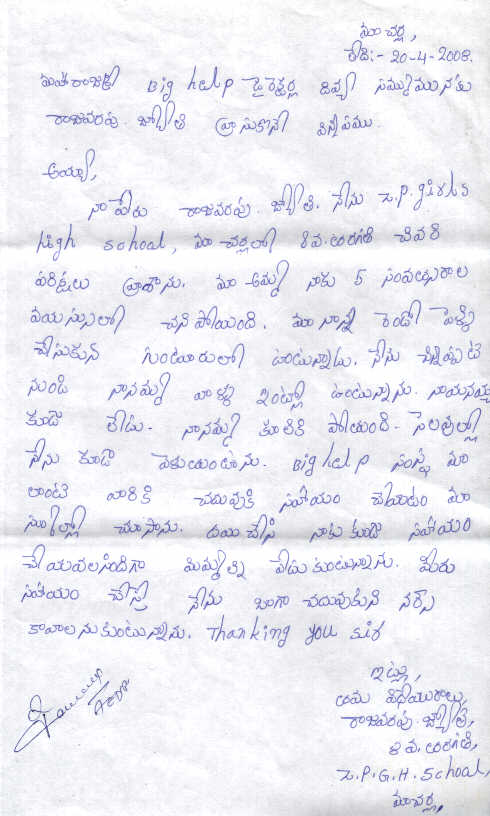 మాచర్ల,
తేది:- 20-4-2008.
Big help డైరెక్టర్ల దివ్య సమ్ముఖమునకు
రాజవరపు. జ్యోతి వ్రాసుకొనే విన్నపము.
అయ్యా,
నా పేరు రాజవరపు. జ్యోతి. నేను z.p. girls
high school, మాచర్లలో 8వ. తరగతి చివరి
పరీక్షలు వ్రాశాను. మా అమ్మ నాకు 5 సంవత్సరాల
వయస్సులో చనిపోయింది. మా నాన్న రెండో పెళ్ళి
చేసుకుని గుంటూరులో ఉంటున్నాడు. నేను చిన్నప్పటి
నుండి నానమ్మ వాళ్ళ ఇంట్లో ఉంటున్నాను. నాయనమ్మ
కూడా లేడు. నానమ్మ కూలికి పోతుంది. సెలవుల్లో
నేను కూడా వెళుతుంటాను. Big help సంస్థ మా
లాంటి వారికి చదువుకి సహాయం చేయటం మా
స్కూల్లో చూసాను. దయచేసి నాకు కూడా సహాయం
చేయవలసిందిగా మిమ్మల్ని వేడుకుంటున్నాను. మీరు
సహాయం చేస్తే నేను బాగా చదువుకుని నర్సు
కావాలనుకుంటున్నాను. Thanking you sir
ఇట్లు,
తమ విధేయురాలు,
రాజవరపు. జ్యోతి,
8వ. తరగతి,
z.P.G.H. School,
మాచర్ల,